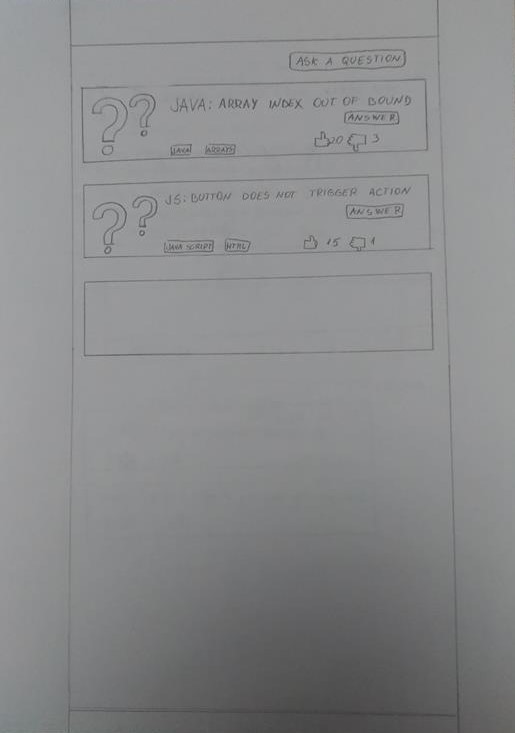 ASK A QUESTION
?? JAVA: ARRAY INDEX OUT OF BOUND
ANSWER
JAVA ARRAYS 20 3
?? JS: BUTTON DOES NOT TRIGGER ACTION
ANSWER
JAVA SCRIPT HTML 15 1